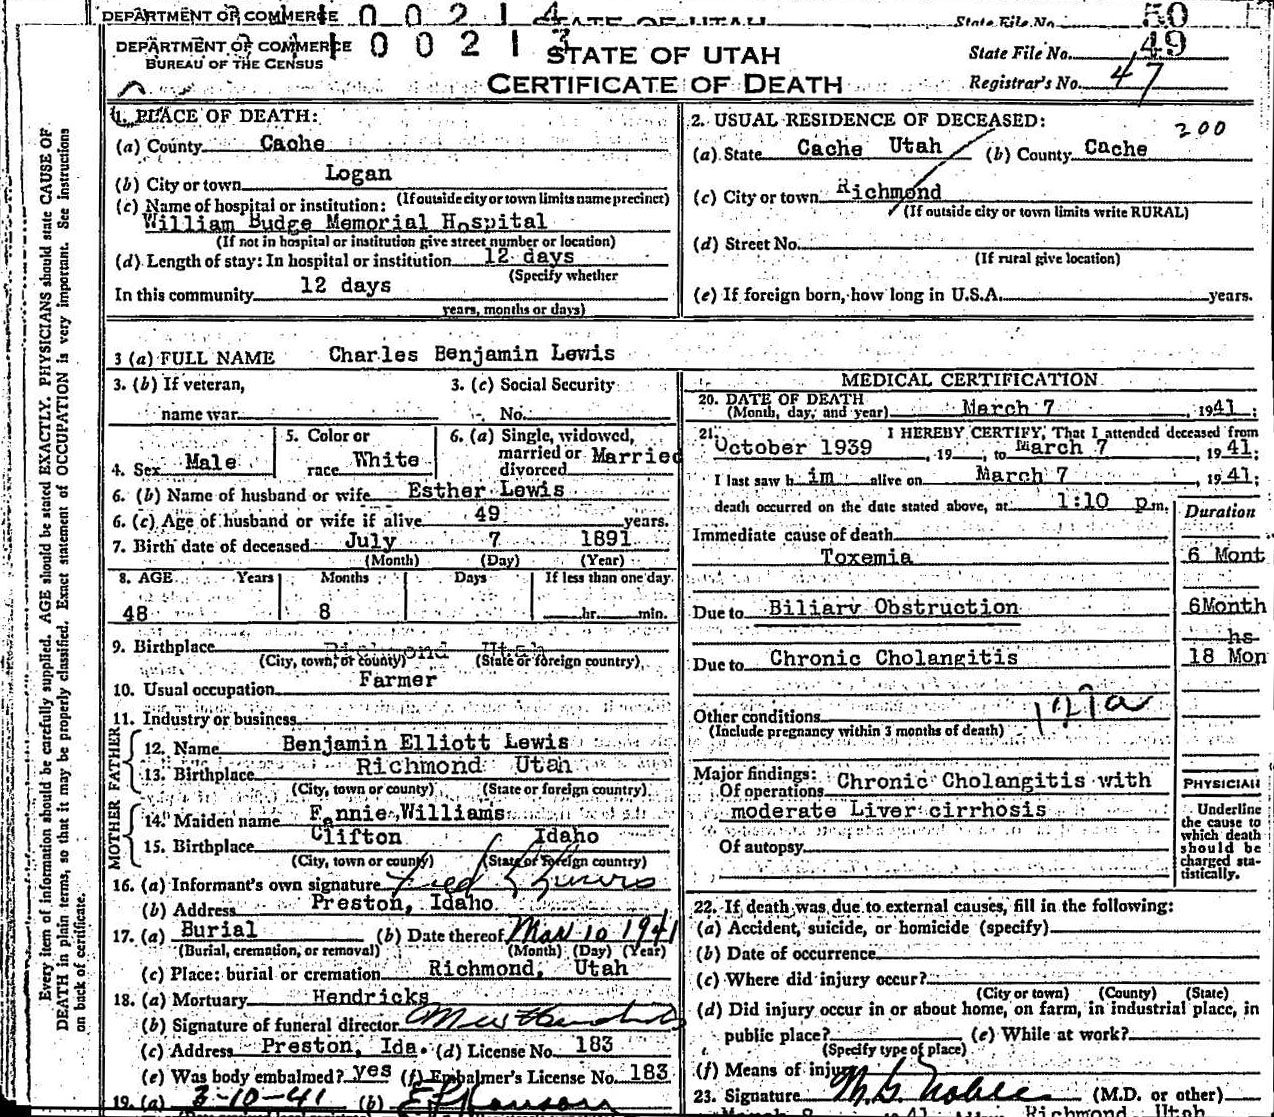 DEPARTMENT OF COMMERCE 1 0 0 2 1 4 STATE OF UTAH State File No. 50
DEPARTMENT OF COMMERCE 1 0 0 2 1 3 STATE OF UTAH State File No. 49
BUREAU OF THE CENSUS CERTIFICATE OF DEATH Registrar's No. 47
Every item of information should be carefully supplied. AGE should be stated EXACTLY. PHYSICIANS should state CAUSE OF
DEATH in plain terms, so that it may be properly classified. Exact statement of OCCUPATION is very important. See instructions
on back of certificate.
1. PLACE OF DEATH:
(a) County Cache
(b) City or town Logan
(If outside city or town limits name precinct)
(c) Name of hospital or institution:
William Budge Memorial Hospital
(If not in hospital or institution give street number or location)
(d) Length of stay: In hospital or institution 12 days
(Specify whether
In this community 12 days
years, months or days)
2. USUAL RESIDENCE OF DECEASED: 200
(a) State Cache Utah (b) County Cache
(c) City or town Richmond
(If outside city or town limits write RURAL)
(d) Street No.
(If rural give location)
(e) If foreign born, how long in U.S.A. years.
3 (a) FULL NAME Charles Benjamin Lewis
3. (b) If veteran, 3. (c) Social Security
name war No.
4. Sex Male 5. Color or race White 6. (a) Single, widowed, married or divorced Married
6. (b) Name of husband or wife Esther Lewis
6. (c) Age of husband or wife if alive 49 years.
7. Birth date of deceased July 7 1891
(Month) (Day) (Year)
8. AGE Years Months Days If less than one day
48 8 hr. min.
9. Birthplace Richmond Utah
(City, town, or county) (State or foreign country)
10. Usual occupation Farmer
11. Industry or business
FATHER
12. Name Benjamin Elliott Lewis
13. Birthplace Richmond Utah
(City, town or county) (State or foreign country)
MOTHER
14. Maiden name Fannie Williams
15. Birthplace Clifton Idaho
(City, town or county) (State or foreign country)
16. (a) Informant's own signature Fred
(b) Address Preston, Idaho
17. (a) Burial (b) Date thereof Mar 10 1941
(Burial, cremation, or removal) (Month) (Day) (Year)
(c) Place: burial or cremation Richmond, Utah
18. (a) Mortuary Hendricks
(b) Signature of funeral director
(c) Address Preston, Ida. (d) License No. 183
(e) Was body embalmed? yes (f) Embalmer's License No. 183
19. (a) 3-10-41 (b)
MEDICAL CERTIFICATION
20. DATE OF DEATH
(Month, day, and year) March 7, 1941;
21. I HEREBY CERTIFY, That I attended deceased from
October 1939, 19 , to March 7, 1941;
I last saw h im alive on March 7, 1941;
death occurred on the date stated above, at 1:10 p.m. Duration
Immediate cause of death
Toxemia 6 Mont
Due to Biliary Obstruction 6Month
hs
Due to Chronic Cholangitis 18 Mon
Other conditions 127a
(Include pregnancy within 3 months of death)
Major findings:
Of operations Chronic Cholangitis with
moderate Liver cirrhosis
Of autopsy
PHYSICIAN
Underline
the cause to
which death
should be
charged sta-
tistically.
22. If death was due to external causes, fill in the following:
(a) Accident, suicide, or homicide (specify)
(b) Date of occurrence
(c) Where did injury occur?
(City or town) (County) (State)
(d) Did injury occur in or about home, on farm, in industrial place, in
public place? (e) While at work?
(Specify type of place)
(f) Means of injury
23. Signature (M.D. or other)
March 8 41 Richmond Utah